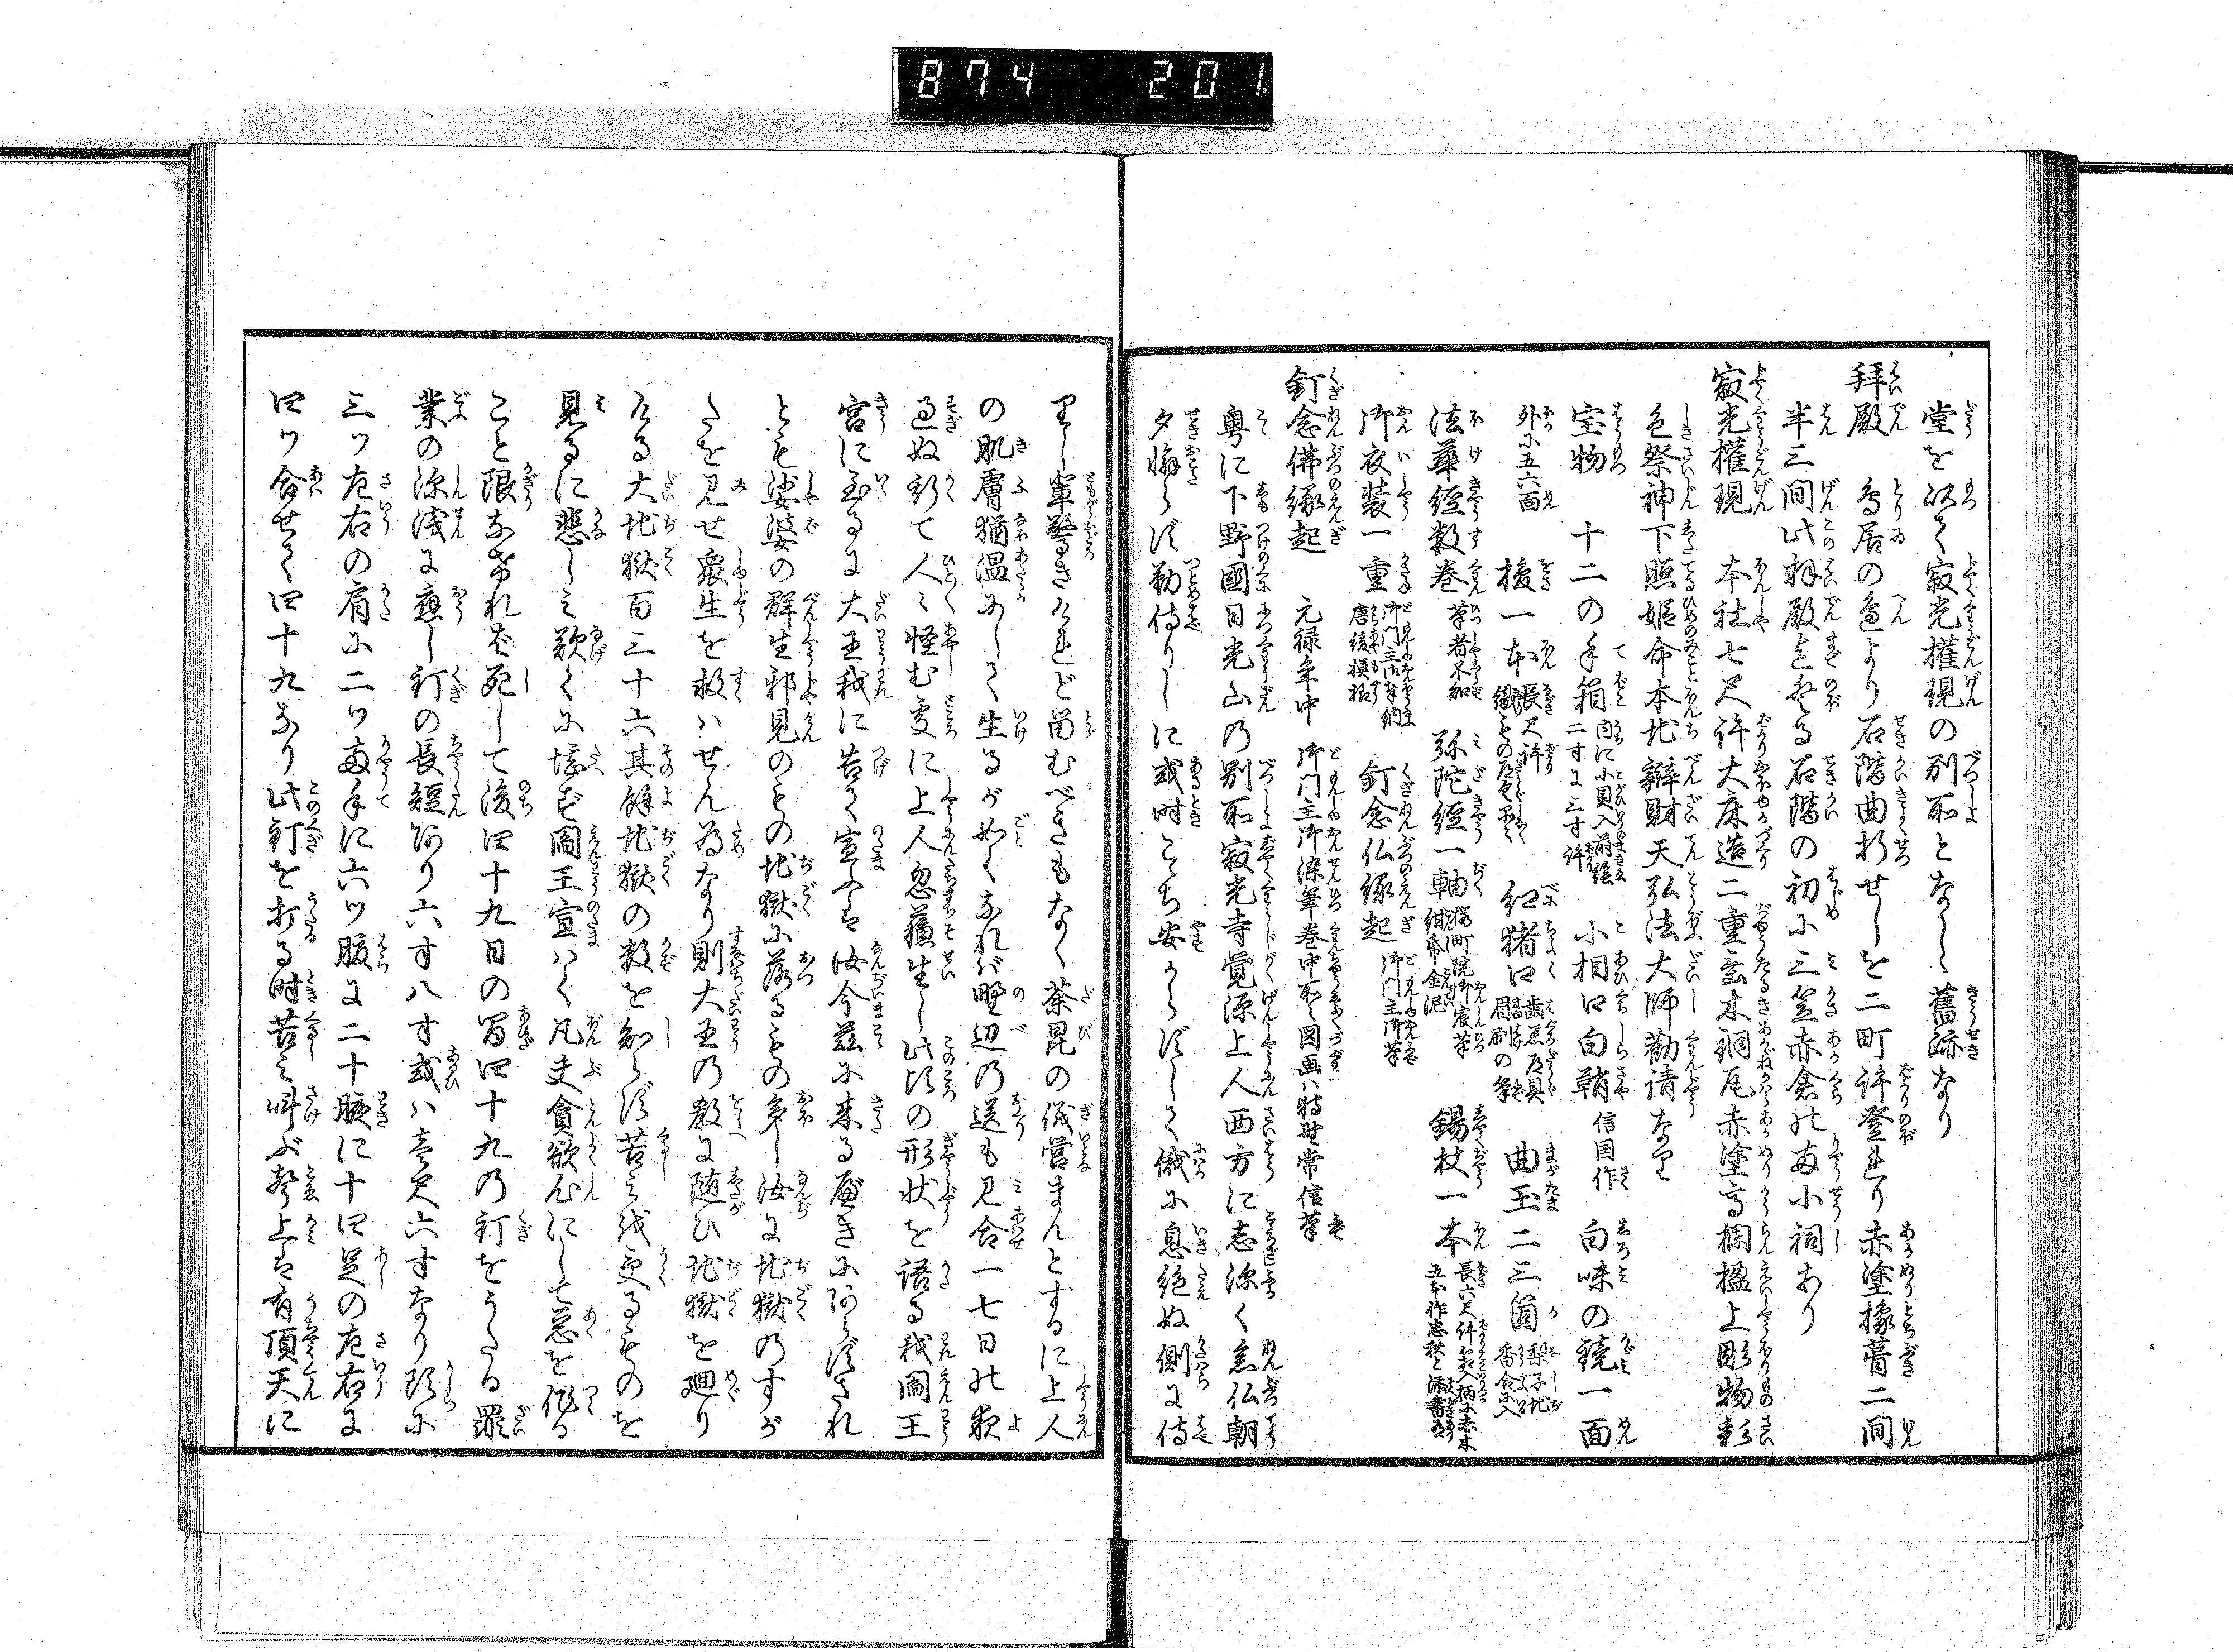 874 201
堂を以て寂光權現の別所となし舊跡なり
拜殿 鳥居の邉より石階曲折せしを二町許登れり赤塗椽葺二間
半三間此拜殿迄登る石階の初に三笠赤倉の両小祠あり
寂光權現 本社七尺許大床造二重垂木銅瓦赤塗高欄楹上彫物彩
色祭神下照姫命本地辯財天弘法大師勸請なり
宝物 十二の手箱 内に小貝入蒔絵二寸に三寸許 小相口白鞘 信国作 白味の鏡一面
外に五六面 桜一本 長尺許 紅猪口 歯黒道具眉刷の筆 曲玉二三箇 梨子地香合に入
法華經数巻 筆者不知 弥陀經一軸 桜町院御宸筆紺帋金泥 錫杖一本 長六尺許
御衣装一重 御門主御奉納唐綾摸搨 釘念仏縁起 御門主御筆
釘念佛縁起 元禄年中 御門主御染筆巻中所々図画ハ狩野常信筆
粤に下野國日光山の別所寂光寺覚源上人西方に志深く念仏朝
夕懈らず勤侍りしに或時こゝち安からずして俄に息絶ぬ側に侍
りし輩驚きけれど留むべきもなく荼毘の儀営まんとするに上人
の肌膚猶温にして生るが如くなれバ野辺の送も見合一七日の夜
過ぬ斯て人々怪む處に上人忽蘓生し此頃の形状を語る我閻王
宮に至るに大王我に告て宣ふは汝今茲に来る歴きにあらずされ
とも娑婆の群生邪見のもの地獄に落るもの多し汝に地獄のすが
たを見せ衆生を救ハせん為なり則大王の教に随ひ地獄を廻り
ける大地獄百三十六其餘地獄の数を知らず苦を受るものを
見るに悲しミ歎くに堪ず閻王宣ハく凡夫貪欲心にして悪を作る
こと限なけれは死して後四十九日の間四十九の釘をうたる罪
業の深浅に應し釘の長短あり六寸八寸或ハ壱尺六寸なり頭に
三ツ左右の肩に二ツ両手に六ツ腹に二十腋に十四足の左右に
四ツ合せて四十九なり此釘を打る時苦ミ叫ぶ聲上は有頂天に